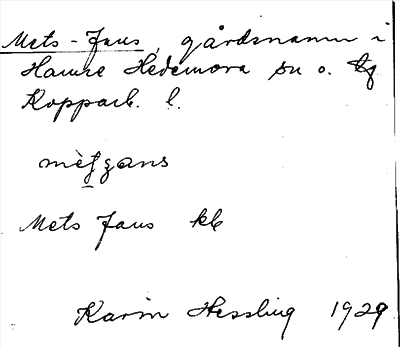 Mets-Jans, gårdsnamn i
Hamre Hedemora sn o.
Kopparb. l.
Mets Jans kb
Karin Hessling 1929